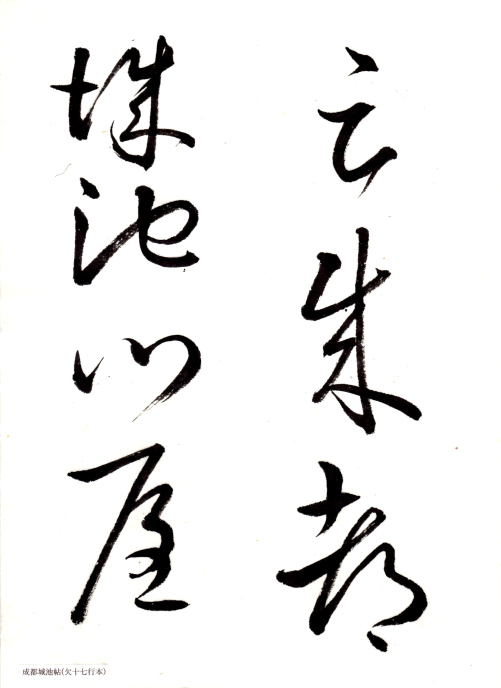 云成都
城池門屋
成都城池帖(欠十七行本)